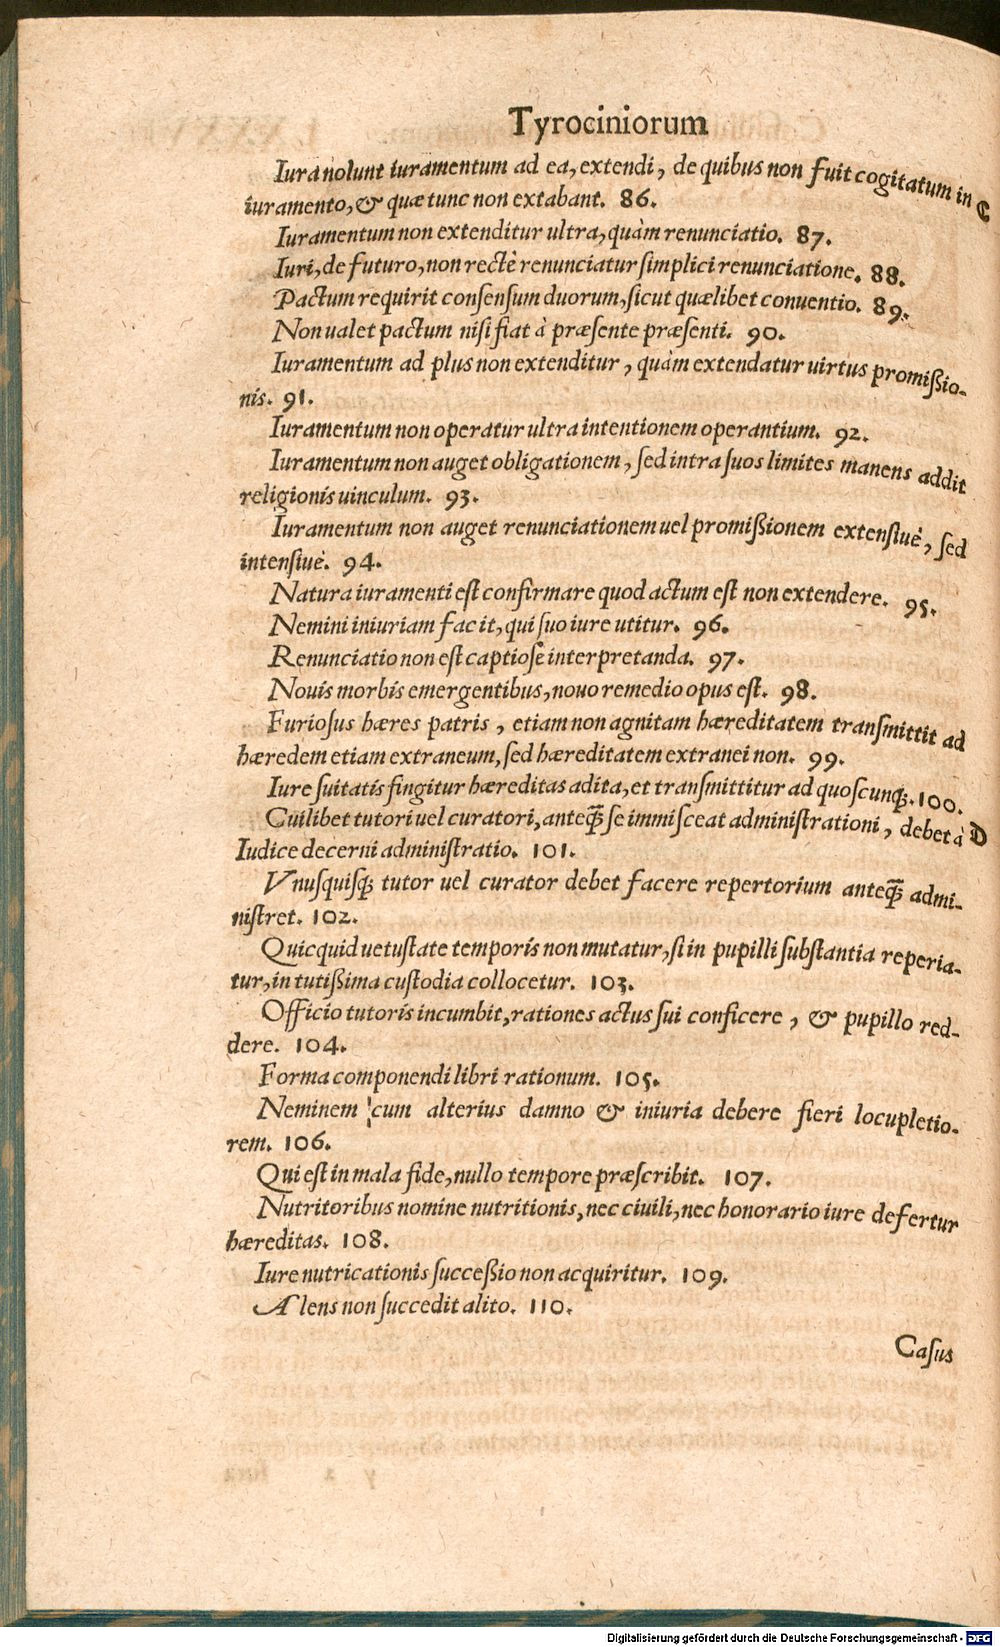 Tyrociniorum
Iura nolunt iuramentum ad ea, extendi, de quibus non fuit cogitatum in C
iuramento, & quæ tunc non extabant. 86.
Iuramentum non extenditur ultra, quàm renunciatio. 87.
Iuri, de futuro, non rectè renunciatur ſimplici renunciatione. 88.
Pactum requirit conſenſum duorum, ſicut quælibet conuentio. 89.
Non ualet pactum niſi fiat à præſente præſenti. 90.
Iuramentum ad plus non extenditur, quàm extendatur uirtus promiſsio-
nis. 91.
Iuramentum non operatur ultra intentionem operantium. 92.
Iuramentum non auget obligationem, ſed intra ſuos limites manens addit
religionis uinculum. 93.
Iuramentum non auget renunciationem uel promiſsionem extenſiuè, ſed
intenſiuè. 94.
Natura iuramenti eſt confirmare quod actum eſt non extendere. 95.
Nemini iniuriam facit, qui ſuo iure utitur. 96.
Renunciatio non eſt captioſe interpretanda. 97.
Nouis morbis emergentibus, nouo remedio opus eſt. 98.
Furioſus hæres patris, etiam non agnitam hæreditatem tranſmittit ad
hæredem etiam extraneum, ſed hæreditatem extranei non. 99.
Iure ſuitatis fingitur hæreditas adita, et tranſmittitur ad quoſcunq́;. 100.
Cuilibet tutori uel curatori, anteq̃; ſe immiſceat adminiſtrationi, debet à D
Iudice decerni adminiſtratio. 101.
Vnuſquiſq́; tutor uel curator debet facere repertorium anteq̃; admi-
niſtret. 102.
Quicquid uetuſtate temporis non mutatur, ſi in pupilli ſubſtantia reperia-
tur, in tutiſsima cuſtodia collocetur. 103.
Officio tutoris incumbit, rationes actus ſui conficere, & pupillo red-
dere. 104.
Forma componendi libri rationum. 105.
Neminem cum alterius damno & iniuria debere fieri locupletio-
rem. 106.
Qui eſt in mala fide, nullo tempore præſcribit. 107.
Nutritoribus nomine nutritionis, nec ciuili, nec honorario iure defertur
hæreditas. 108.
Iure nutricationis ſucceſsio non acquiritur. 109.
Alens non ſuccedit alito. 110.
Caſus
Digitalisierung gefördert durch die Deutsche Forschungsgemeinschaft - DFG